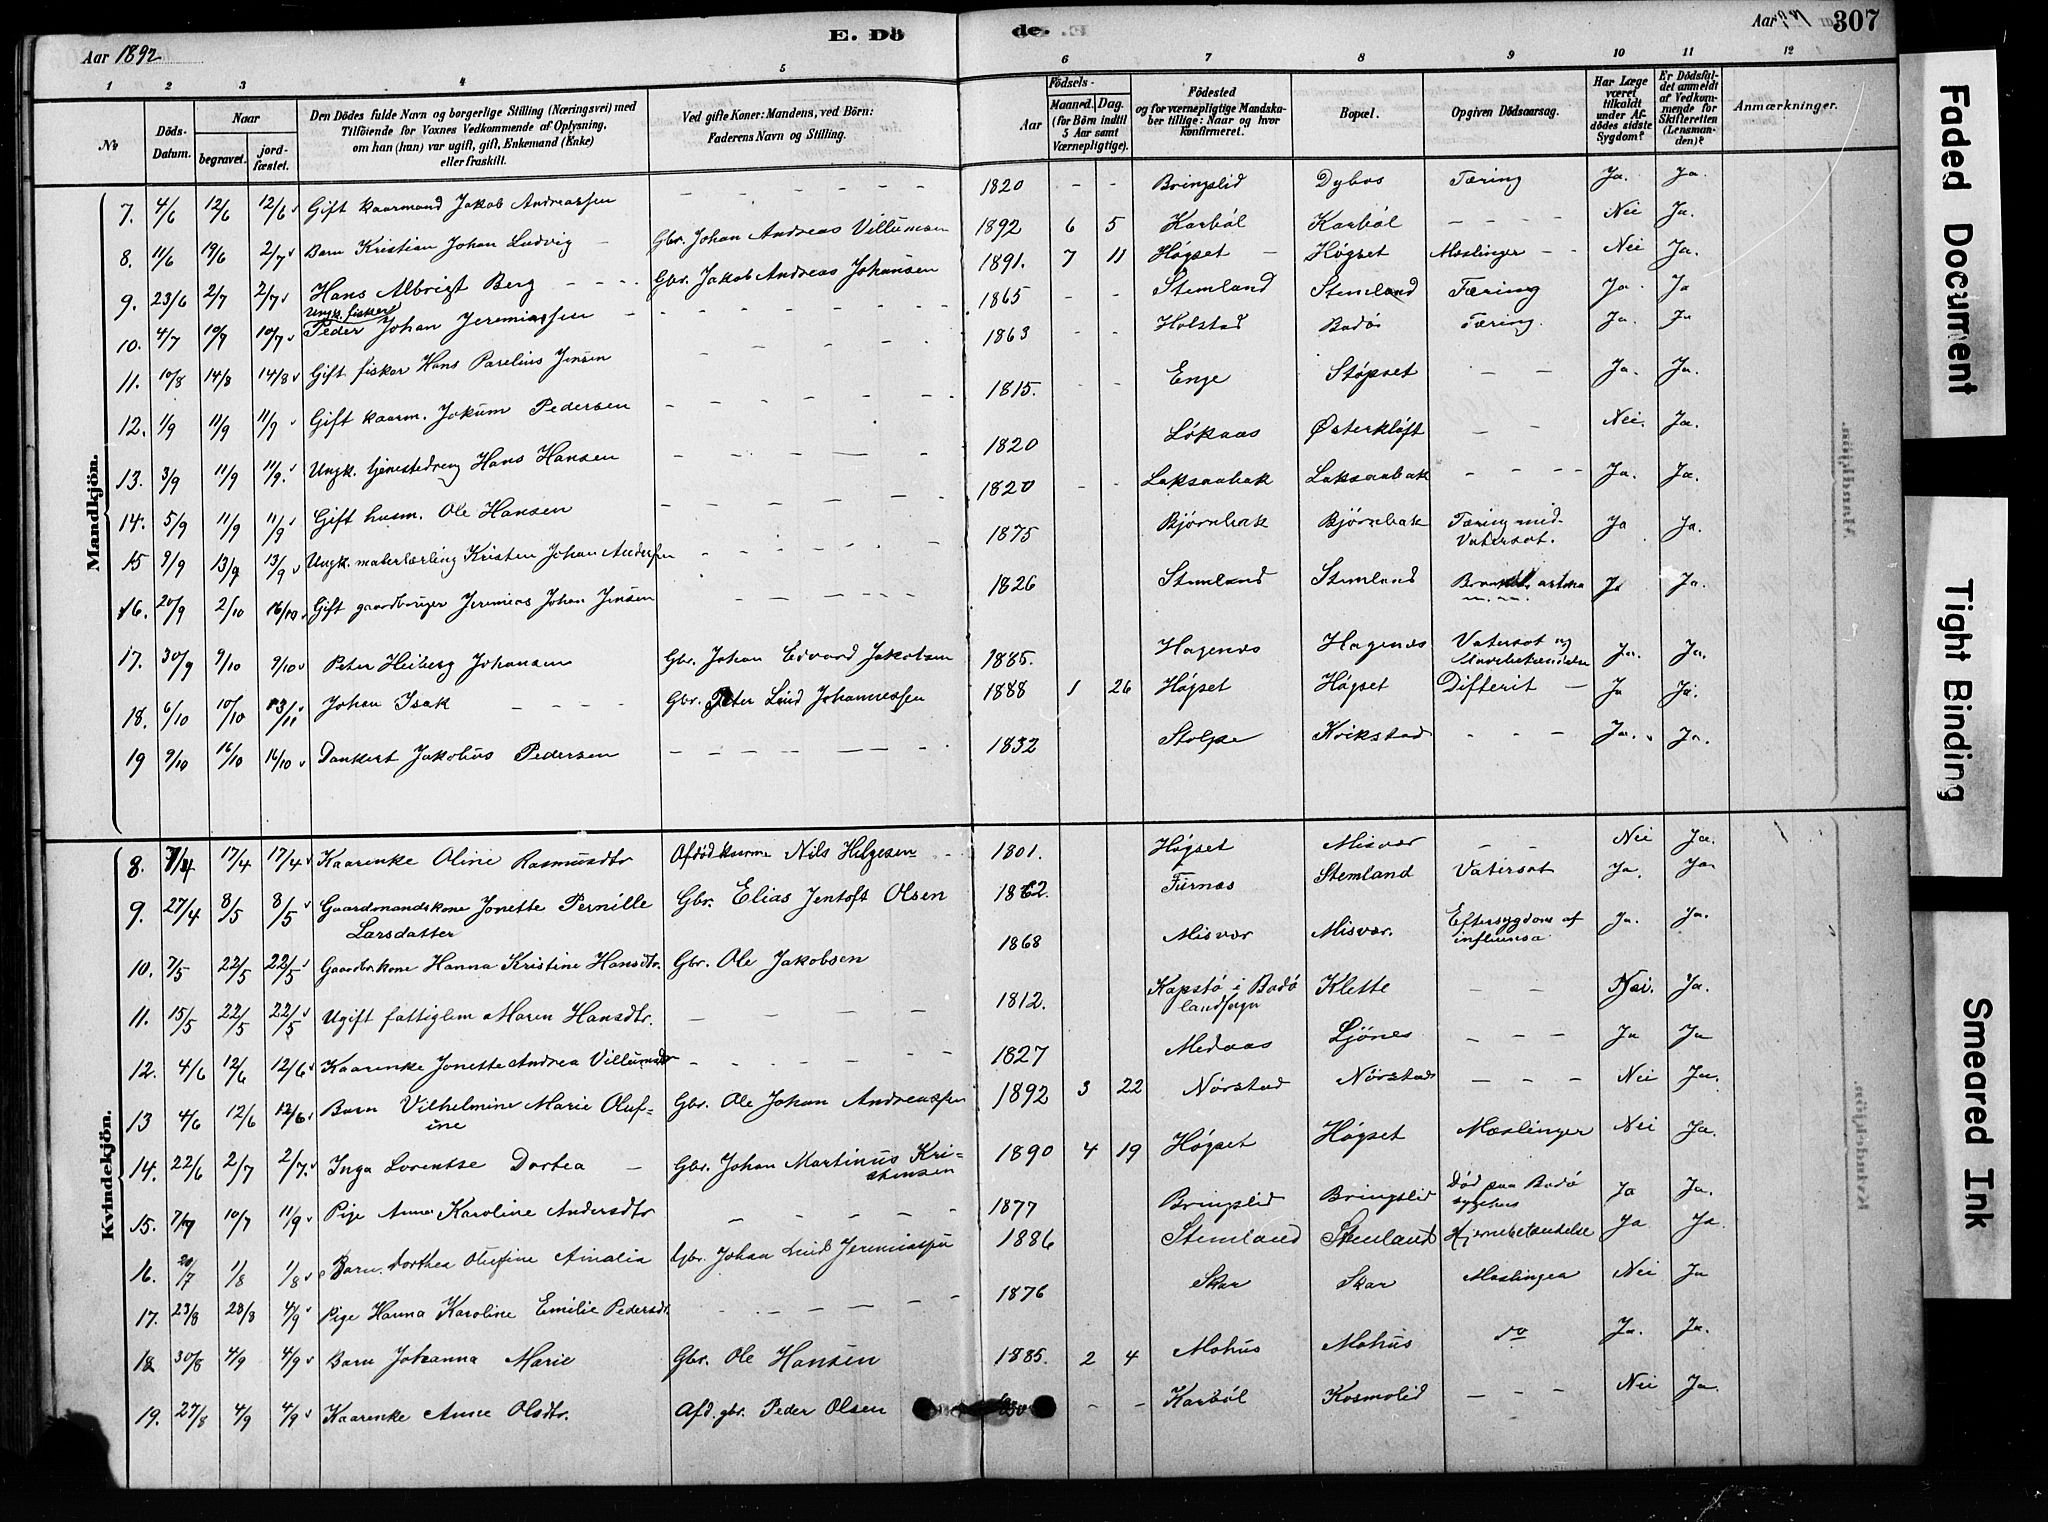 Aar 1892
E. Dö
de.
Aar
307
1 2 3 4 5 6 7 8 9 10 11 12
No
Döds-Datum.
Naar
begravet.
jord-fæstet.
Den Dödes fulde Navn og borgerlige Stilling (Næringsvei) med
Tilföiende for Voxnes Vedkommende af Oplysning,
om han (hun) var ugift, gift, Enkemand (Enke)
eller fraskilt.
Ved gifte Koner: Mandens, ved Börn:
Faderens Navn og Stilling.
Födsels-
Aar
Maaned. Dag.
(for Börn indtil
5 Aar samt
Værnepligtige).
Födested
og for værnepligtige Mandska-
ber tillige: Naar og hvor
konfirmeret.
Bopæl.
Opgiven Dödsaarsag.
Har Læge
været
tilkaldt
under Af-
dödes sidste
Sygdom?
Er Dödsfal-
det anmeldt
af Vedkom-
mende for
Skifteretten
(Lensman-
den)?
Anmærkninger.
Mandkjön.
7. 4/6 12/6 12/6 Gift kaarmand Jakob Andreassen — 1820 - - Bringslid Dybos Tæring Ja. Ja.
8. 11/6 19/6 2/7 Barn Kristian Johan Ludvig — Gbr. Johan Andreas Villumsen 1892 6 5 Karbøl Karbøl - - - - Nei Ja.
9. 23/6 2/7 2/7 Hans Albrigt Berg - - - - Gbr. Jakob Andreas Johansen 1891. 7 11 Høgset — Høgset Mæslinger - - Nei Ja.
10. 4/7 10/7 10/7 Ungk. fisker Peder Johan Jeremiassen — 1865 - - Stemland Stemland Tæring Ja. Ja
11. 10/8 14/8 14/8 Gift fisker Hans Parelius Jensen — 1863 - - Holstad Bodø Tæring. Ja. Ja
12. 1/9 11/9 11/9 Gift kaarm. Jokum Pedersen — 1815. - - Enge Støpset - - Ja. Ja.
13. 3/9 11/9 11/9 Ungk. tjenestedreng Hans Hansen — 1820 Løkaas Østerkløft - - Nei. Ja.
14. 5/9 11/9 11/9 Gift husm. Ole Hansen — 1820 - - Laksaabak Laksaabak - - - - Ja. Ja.
15 9/9 13/9 13/9 Ungk. malerlærling Kristen Johan Andersen — 1875 Bjørnbak Bjørnbak Tæring med Vatersot. Ja Ja.
16. 20/9 2/10 16/10 Gift gaardbruger Jeremias Johan Jensen — 1826 Stemland Stemland astma m. m. Ja Ja.
17. 30/9 9/10 9/10 Peter Heiberg Johansen Gbr. Johan Edvard Jakobsen 1885. Hagenæs Hagenæs Vatersot og Ja. Ja.
18. 6/10 10/10 13/11 Johan Isak — Gbr. Peter Lind Johannessen 1888 1 26 Høgset Høgset Difterit — Ja Ja.
19 9/10 16/10 16/10 Dankert Jakobus Pedersen — 1832 Stolpe Kvikstad - - - Ja. Ja.
Kvindekjön.
8. 7/4 17/4 17/4 Kaarenke Oline Rasmusdtr Afdød Nils Helgesen 1801. Høgset Misvær - - Nei Ja.
9. 27/4 8/5 8/5 Gaardmandskone Jonette Pernille Gbr. Elias Jentoft Olsen 1862. Furnæs Stemland Vatersot Ja. Ja.
Larsdatter
10. 7/5 22/5 22/5 Gaardbr.kone Hanna Kristine Hansdtr. Gbr. Ole Jakobsen 1868 Misvær Misvær. Eftersygdom af influensa Ja. Ja.
11. 15/5 22/5 22/5 Ugift fattiglem Maren Hansdtr. — 1812. Kapstø i Bodø landsogn Klette - - Nei. Ja.
12. 4/6 12/6 12/6 Kaarenke Jonette Andrea Villumsdtr — 1827 Medaas Ljønes - - - Ja Ja
13 4/6 12/6 12/6 Barn Vilhelmine Marie Oluf- Gbr. Ole Johan Andreassen 1892 3 22 Nørstad Nørstad - - - Nei Ja.
ine
14. 22/6 2/7 2/7. Inga Lorentse Dortea — Gbr. Johan Martinus Kri- 1890 4 19 Høgset Høgset Mæslinger Nei Ja.
stensen
15. 7/9 10/7 11/9 Pige Anna Karoline Andersdtr — 1877 Bringslid Bringslid Død paa Bodø sygehus Ja Ja.
16. 20/7 1/8 1/8 Barn Dorthea Olufine Amalia Gbr. Johan Lind Jeremiassen 1886 Stemland Stemland Hjernebetændelse Ja Ja.
17. 23/8 28/8 4/9 Pige Hanna Karoline Emilie Pedersdt. — 1876 Skar Skar Mæslinger Nei Ja
18 30/8 4/9 4/9 Barn Johanna Marie Gbr. Ole Hansen 1885. 2 4 Mohus Mohus do Ja. Ja.
19. 27/8 4/9 4/9 Kaarenke Anne Olsdtr. Afd. gbr. Peder Olsen - - Karbøl Kosmolid - - - Nei Ja.
Faded Document
Tight Binding
Smeared Ink